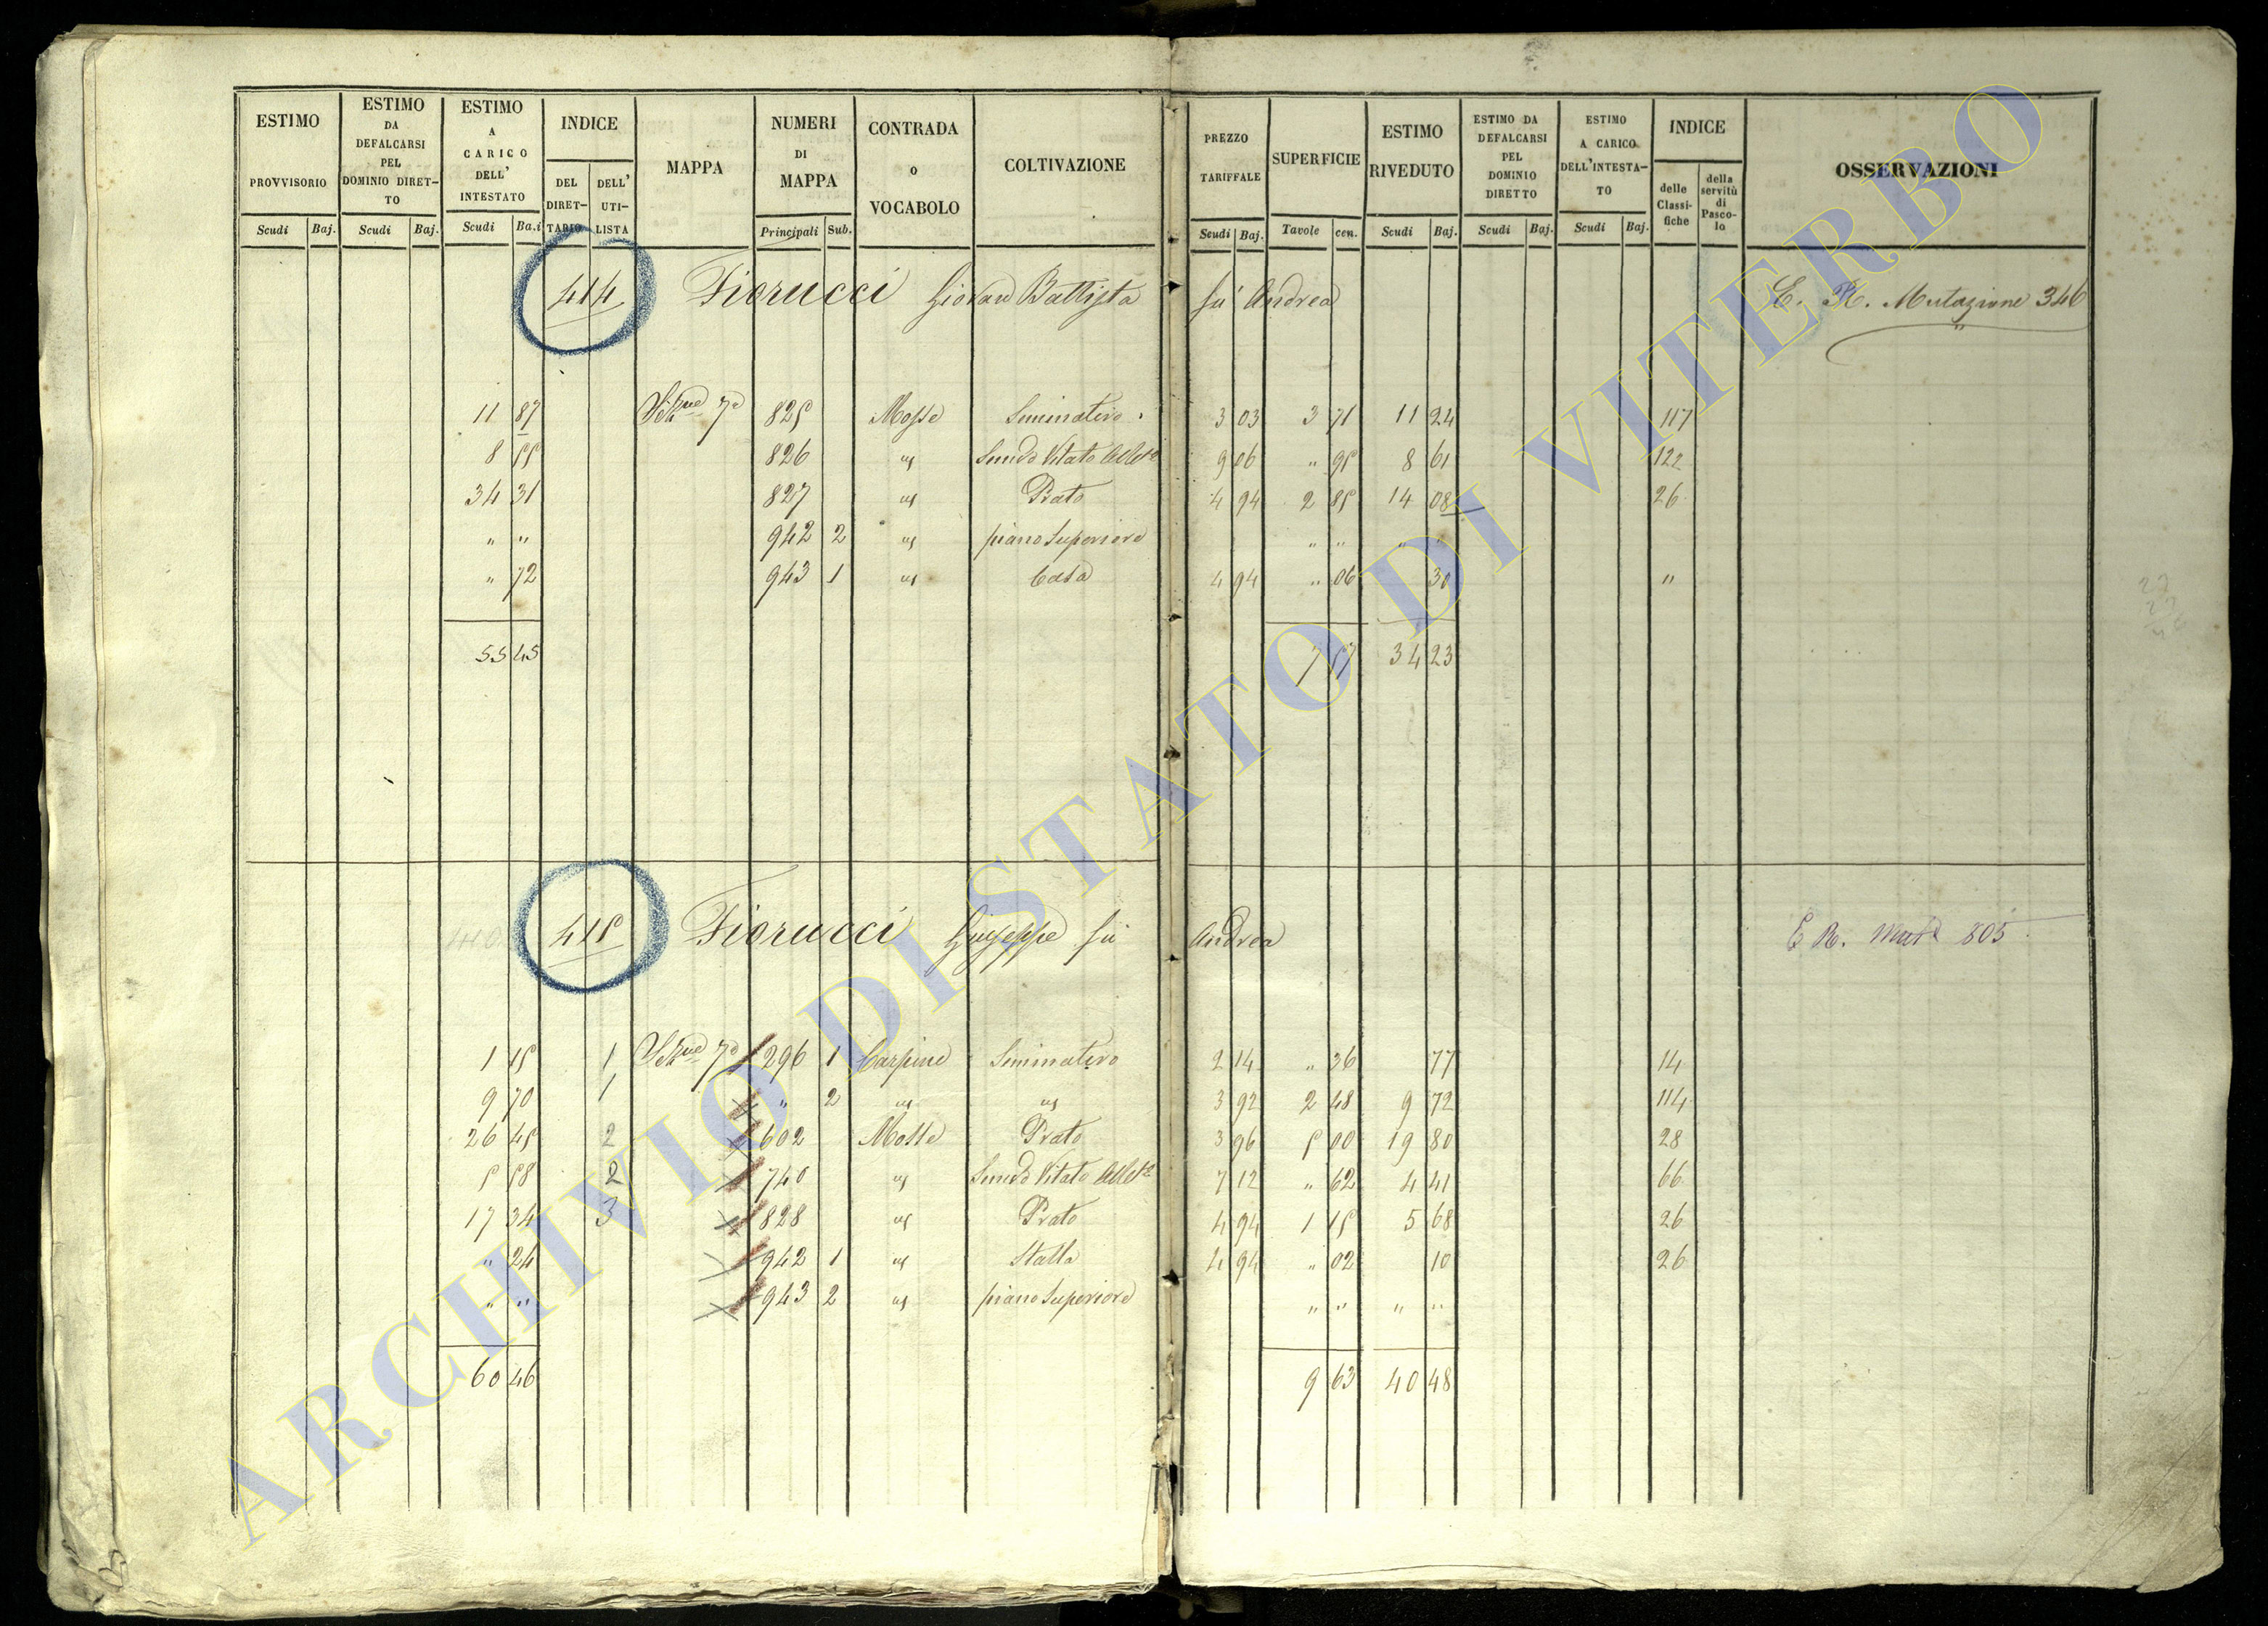 ESTIMO PROVVISORIO
Scudi Baj.
ESTIMO DA DEFALCARSI PEL DOMINIO DIRET-TO
Scudi Baj.
ESTIMO A CARICO DELL' INTESTATO
Scudi Ba.i
INDICE
DEL DIRET-TARIO
DELL' UTI-LISTA
MAPPA
NUMERI DI MAPPA
Principali Sub.
CONTRADA o VOCABOLO
COLTIVAZIONE
PREZZO TARIFFALE
Scudi Baj.
SUPERFICIE
Tavole cen.
ESTIMO RIVEDUTO
Scudi Baj.
ESTIMO DA DEFALCARSI PEL DOMINIO DIRETTO
Scudi Baj.
ESTIMO A CARICO DELL'INTESTA-TO
Scudi Baj.
INDICE
delle Classi-fiche
della servitù di Pasco-lo
OSSERVAZIONI
414 Fiorucci Giovan Battista fu Andrea
Mutazione 346
11 87 825 Mosse Seminativo 3 03 3 71 11 24 117
8 55 826 " 9 06 " 95 8 61 122
34 31 827 " Prato 4 94 2 85 14 08 26
" " 942 2 " piano Superiore " " " "
" 72 943 1 " Casa 4 94 " 06 30 "
55 45 7 57 34 23
415 Fiorucci Giuseppe fu Andrea
805
1 15 1 296 1 Carpine Seminativo 2 14 " 36 77 14
9 70 1 " 2 " " 3 92 2 48 9 72 114
26 45 2 602 Mosse Prato 3 96 5 00 19 80 28
5 58 2 740 " 7 12 " 62 4 41 66
17 34 3 828 " Prato 4 94 1 15 5 68 26
" 24 942 1 " Stalla 4 94 " 02 10 26
" " 943 2 " piano Superiore " " " "
60 46 9 63 40 48
ARCHIVIO DI STATO DI VITERBO